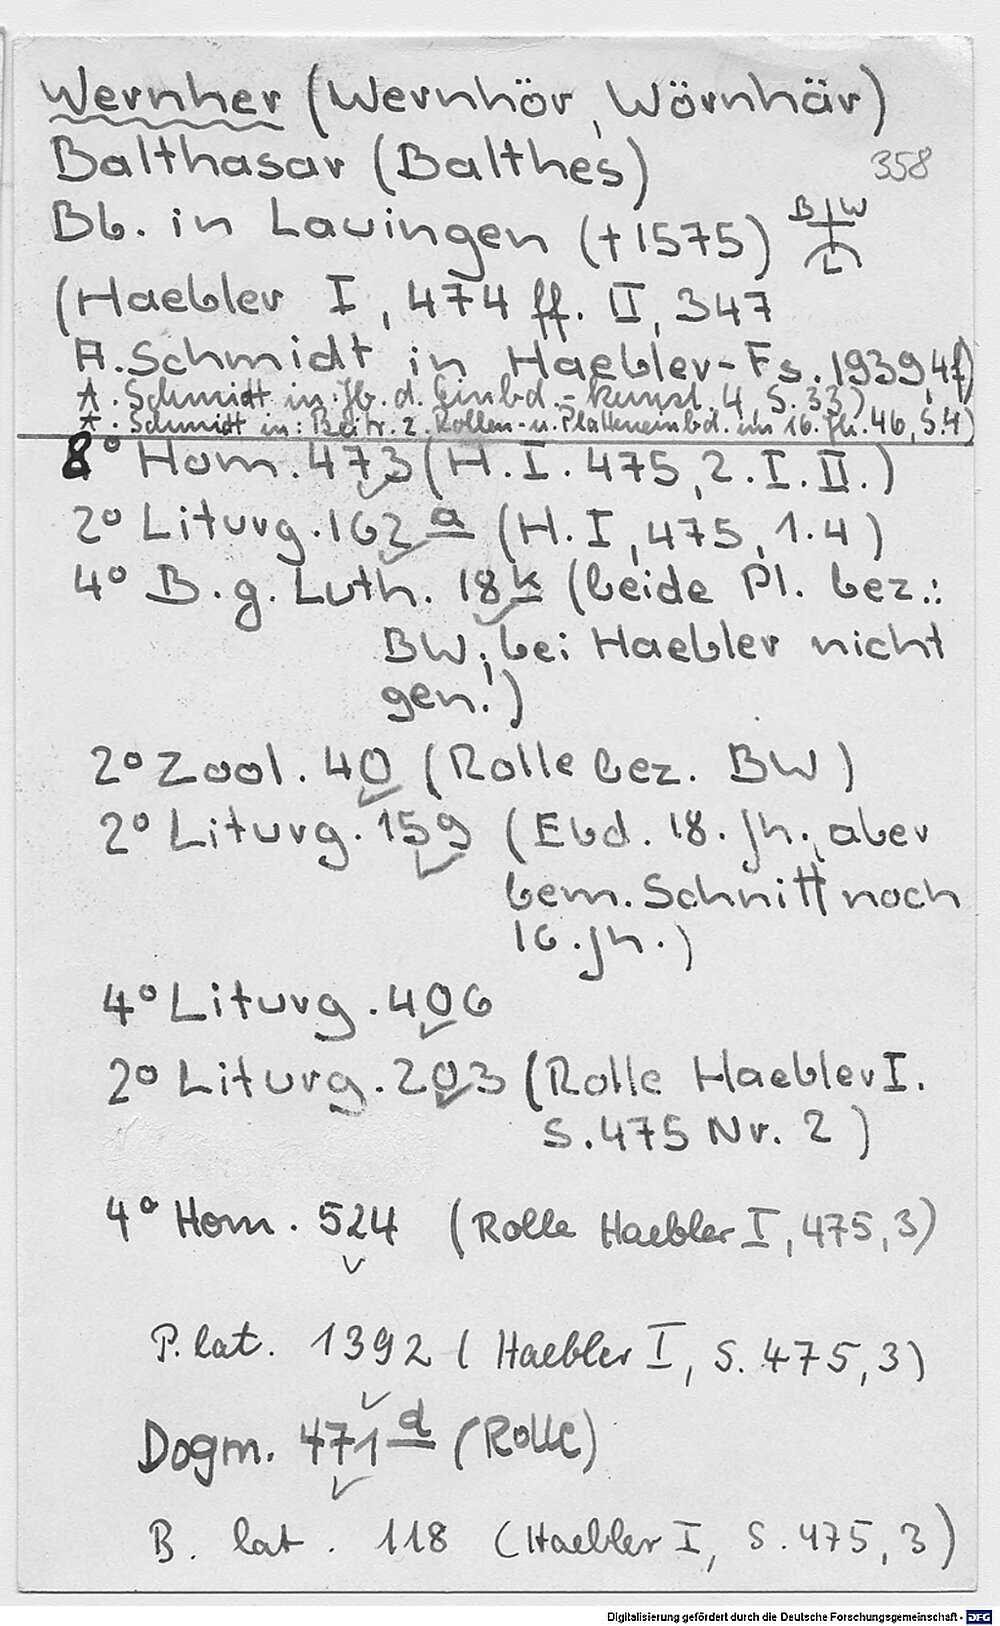 Wernher (Wernhör, Wörnhär)
Balthasar (Balthes)
358
Bb. in Lauingen (†1575)
B W
L
(Haebler I, 474 ff. II, 347
A. Schmidt in Haebler-Fs. 1939, 47)
A. Schmidt in: Jb. d. Einbd.-kunst. 4, S. 33)
A. Schmidt in: Beitr. z. Rollen- u. Platteneinbd. im 16. Jh. 46, S. 4)
8° Hom. 473 (H. I. 475, 2. I. II.)
2° Liturg. 162 a (H. I, 475, 1.4)
4° B. g. Luth. 18 k (beide Pl. bez.:
BW; bei Haebler nicht
gen.!)
2° Zool. 40 (Rolle bez. BW)
2° Liturg. 159 (Ebd. 18. Jh., aber
bem. Schnitt noch
16. Jh.)
4° Liturg. 406
2° Liturg. 203 (Rolle Haebler I.
S. 475 Nr. 2)
4° Hom. 524 (Rolle Haebler I, 475, 3)
P. lat. 1392 (Haebler I, S. 475, 3)
Dogm. 471 d (Rolle)
B. lat. 118 (Haebler I, S. 475, 3)
Digitalisierung gefördert durch die Deutsche Forschungsgemeinschaft - DFG